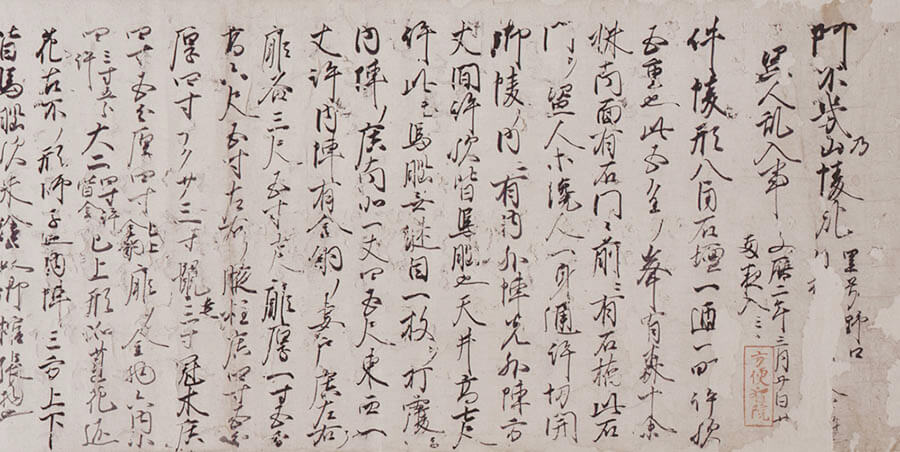 阿不幾乃山陵記 里号野口
盗人乱入事 文暦二年三月廿日廿
両夜入云々
方便智院
件陵形八角石壇一匝一町許歟
五重也此五重ノ峯有森十余
株南面有石門々前ニ有石橋此石
門ヲ盗人等纔人一身通許切開
御陵ノ内ニ有内外陣先外陣方
丈間許歟皆馬脳也天井高七尺
許此モ馬脳無継目一枚ヲ打覆
内陣ノ広南北一丈四五尺東西一
丈許内陣有金銅ノ妻戸広左右
扉各三尺五寸七尺扉厚一寸五分
高六尺五寸左右ノ腋柱広四寸五分
厚四寸マクサ三寸鼠走三寸冠木広
四寸五分厚四寸已上金銅扉ノ金物六内小
四三寸五分許大二四寸許皆金已上形如蓮花返
花古不ノ形師子也内陣三方上下
皆馬脳歟朱塗也御棺張物也